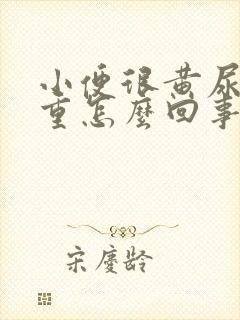 小便很黄尿
重怎麼回事
宋慶齡